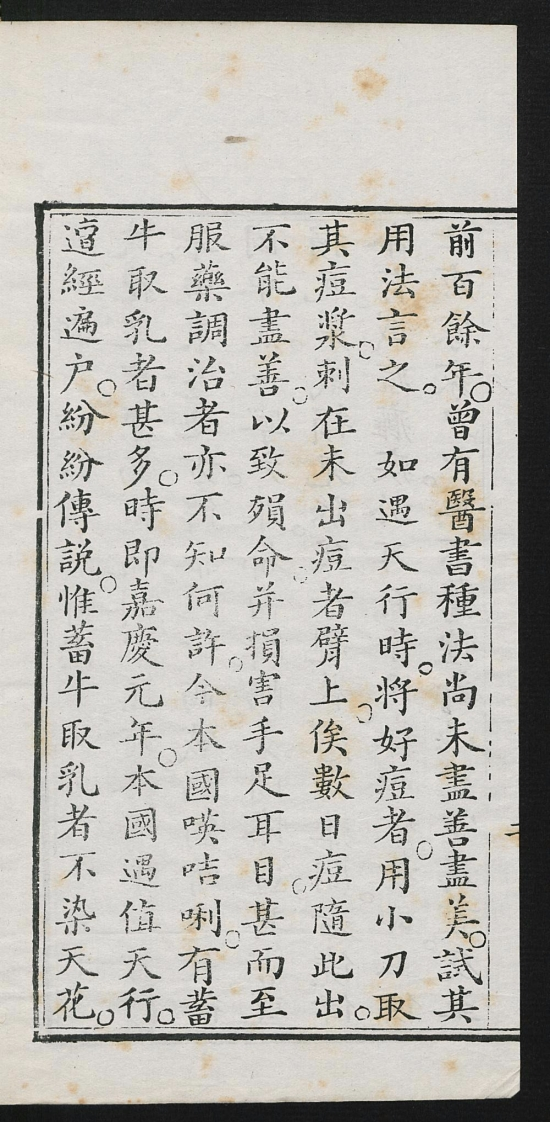 前百餘年。曾有醫書種法尚未盡善盡美。試其
用法言之。如遇天行時。將好痘者。用小刀取
其痘漿。刺在未出痘者臂上。俟數日痘隨此出。
不能盡善。以致殞命。并損害手足耳目。甚而至
服藥調治者亦不知何許。今本國𠸄咭唎。有蓄
牛取乳者甚多。時即嘉慶元年。本國遇值天行。
遍經遍户。紛紛傳説。惟蓄牛取乳者不染天花。